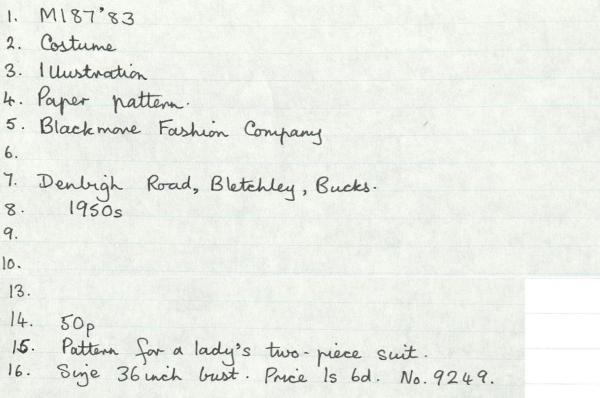 1. M187'83
2. Costume
3. Illustration
4. Paper pattern.
5. Blackmore Fashion Company
6.
7. Denbigh Road, Bletchley, Bucks.
8. 1950s
9.
10.
13.
14. 50p
15. Pattern for a lady's two-piece suit.
16. Size 36 inch bust. Price 1s 6d. No. 9249.